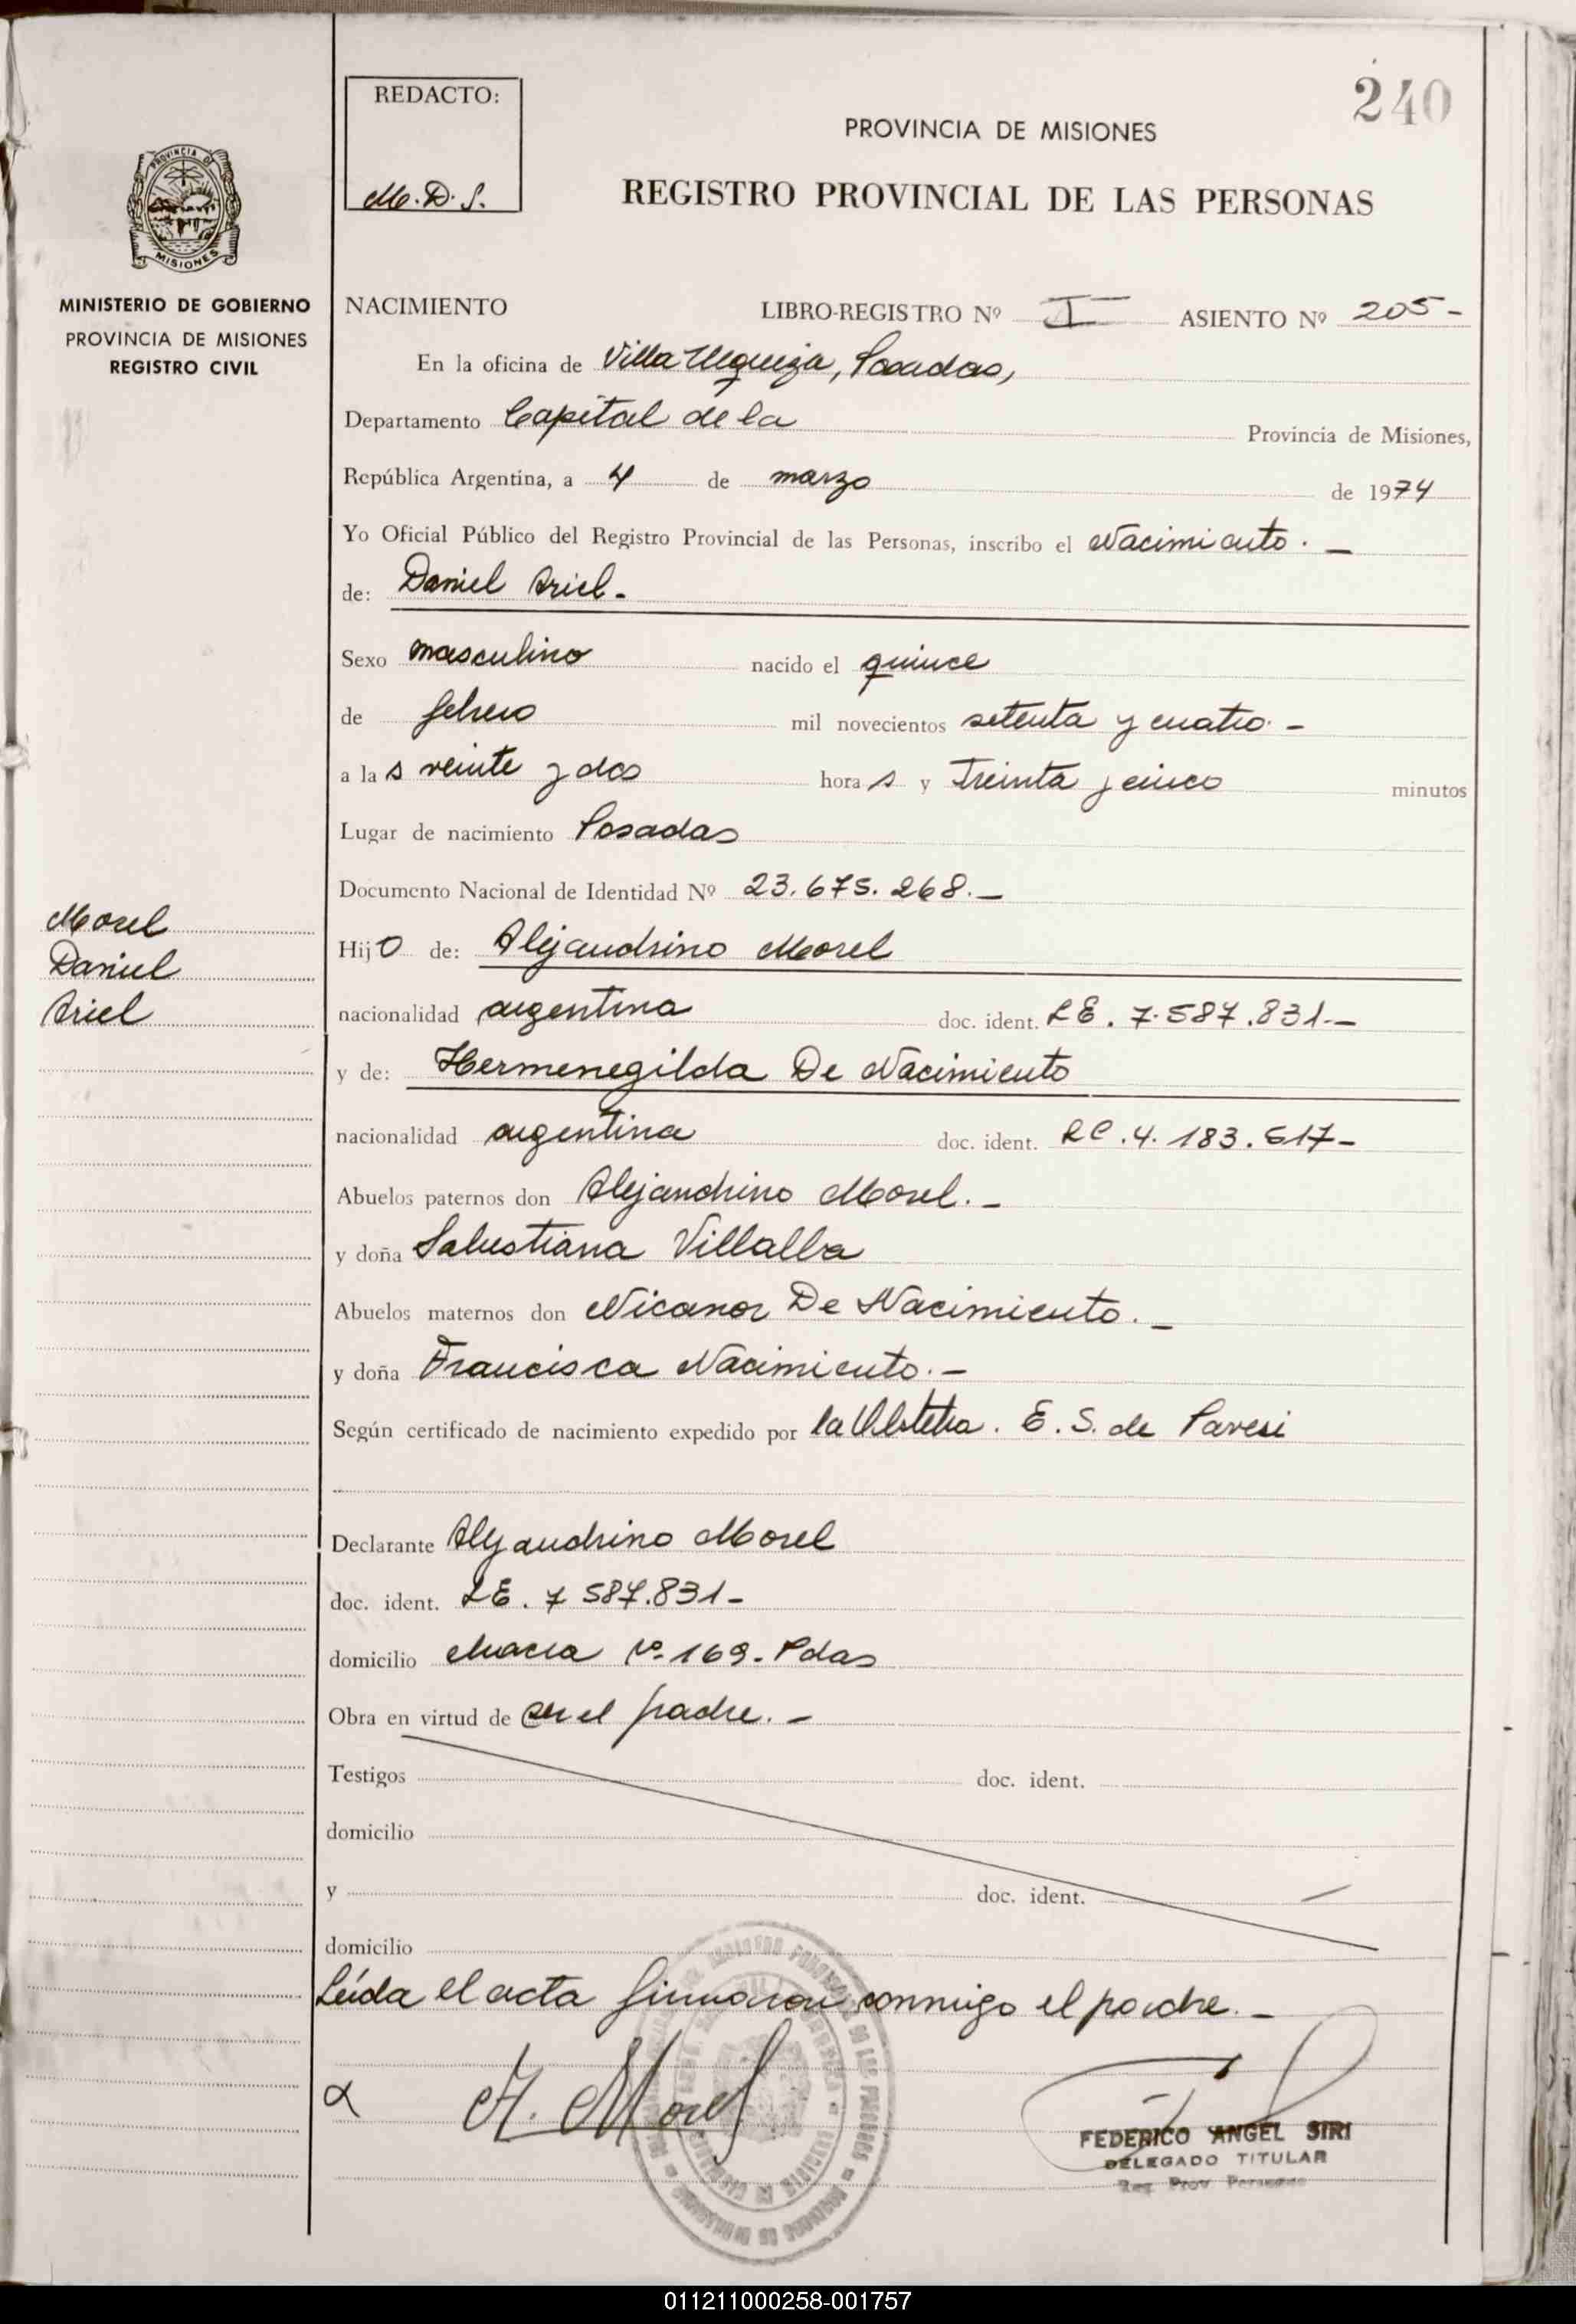 240
REDACTO:
M.D.S.
PROVINCIA DE MISIONES
REGISTRO PROVINCIAL DE LAS PERSONAS
PROVINCIA DE
MISIONES
MINISTERIO DE GOBIERNO
PROVINCIA DE MISIONES
REGISTRO CIVIL
NACIMIENTO LIBRO-REGISTRO Nº I ASIENTO Nº 205-
En la oficina de Villa Urquiza, Posadas,
Departamento Capital de la Provincia de Misiones,
República Argentina, a 4 de marzo de 1974
Yo Oficial Público del Registro Provincial de las Personas, inscribo el Nacimiento.-
de: Daniel Ariel.-
Sexo masculino nacido el quince
de febrero mil novecientos setenta y cuatro.-
a las veinte y dos horas y Treinta y cinco minutos
Lugar de nacimiento Posadas
Documento Nacional de Identidad Nº 23.675.268.-
Morel
Daniel
Ariel
Hijo de: Alejandrino Morel
nacionalidad argentina doc. ident. LE. 7.587.831.-
y de: Hermenegilda De Nacimiento
nacionalidad argentina doc. ident. LC.4.183.617-
Abuelos paternos don Alejandrino Morel.-
y doña Salustiana Villalba
Abuelos maternos don Nicanor De Nacimiento.-
y doña Francisca Nacimiento.-
Según certificado de nacimiento expedido por la E. S. de Pavesi
Declarante Alejandrino Morel
doc. ident. LE. 7 587.831-
domicilio chacra Nº 169- Pdas
Obra en virtud de ser el padre.-
Testigos doc. ident.
domicilio
y doc. ident.
domicilio
Leída el acta firmaron conmigo el padre.-
A. Morel
FEDERICO ANGEL SIRI
DELEGADO TITULAR
Reg. Prov. Personas
011211000258-001757